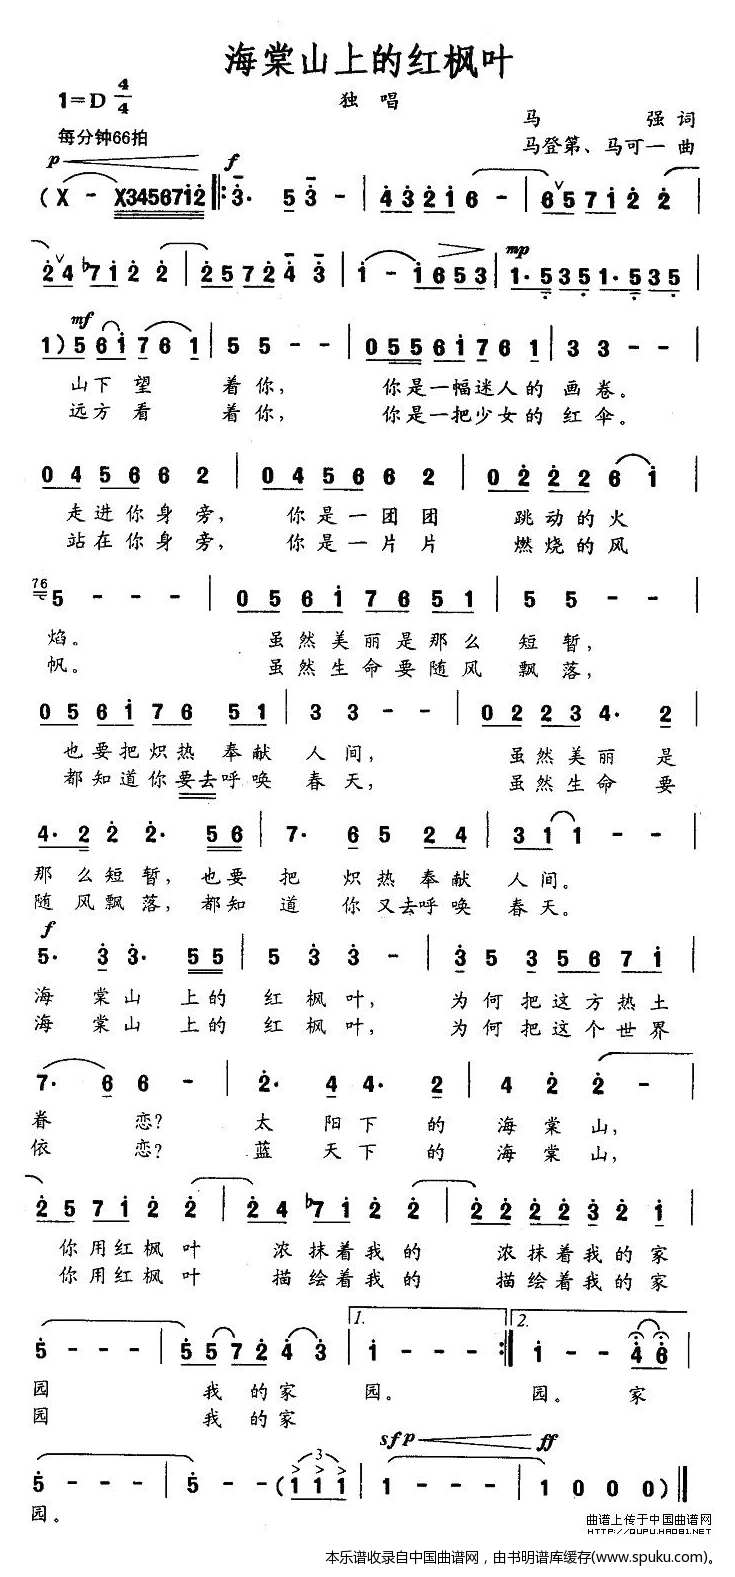 海棠山上的红枫叶
1=D 4/4
独 唱
马 强 词
马登第、马可一 曲
每分钟66拍
p f
(X - X34567i2 ‖: 3· 5 3 - | 4 3 2 1 6 - | 6 5 7 1 2 2 |
2 4 ♭7 1 2 2 | 2 5 7 2 4 3 | i - i 6 5 3 | 1· 5 3 5 1· 5 3 5 |
mp
mf
1) 5 6 i 7 6 1 | 5 5 - - | 0 5 5 6 i 7 6 1 | 3 3 - - |
山下 望 着你, 你是一幅迷人的 画 卷。
远方 看 着你, 你是一把少女的 红 伞。
0 4 5 6 6 2 | 0 4 5 6 6 2 | 0 2 2 2 6 i |
走进你身旁, 你是一团团 跳动的火
站在你身旁, 你是一片片 燃烧的风
76
5 - - - | 0 5 6 i 7 6 5 1 | 5 5 - - |
焰。 虽然美丽是那么 短暂,
帆。 虽然生命要随风 飘落,
0 5 6 i 7 6 5 1 | 3 3 - - | 0 2 2 3 4· 2 |
也要把炽热 奉献 人间, 虽然美丽 是
都知道你要去呼唤 春天, 虽然生命 要
4· 2 2 2· 5 6 | 7· 6 5 2 4 | 3 1 1 - - |
那么短暂,也要 把 炽热奉献 人间。
随风飘落,都知 道 你又去呼唤 春天。
f
5· 3 3· 5 5 | 5 3 3 - | 3 5 3 5 6 7 i |
海 棠山 上的 红枫叶, 为何把这方热土
海 棠山 上的 红枫叶, 为何把这个世界
7· 6 6 - | 2· 4 4· 2 | 4 2 2 - |
眷 恋? 太 阳下 的 海棠山,
依 恋? 蓝 天下 的 海棠山,
2 5 7 i 2 2 | 2 4 ♭7 i 2 2 | 2 2 2 2 3 2 i |
你用红枫叶 浓抹着我的 浓抹着我的家
你用红枫叶 描绘着我的 描绘着我的家
1. 2.
5 - - | 5 5 7 2 4 3 | i - - - :‖ i - - 4 6 |
园 我的家 园。 园。 家
园 我的家
sfp ff
5 - - - | 5 - - (1 1 1 | 1 - - - | 1 0 0 0) ‖
3
园。
曲谱上传于中国曲谱网
HTTP://QUPU.HAO81.NET
本乐谱收录自中国曲谱网，由书明谱库缓存(www.spuku.com)。